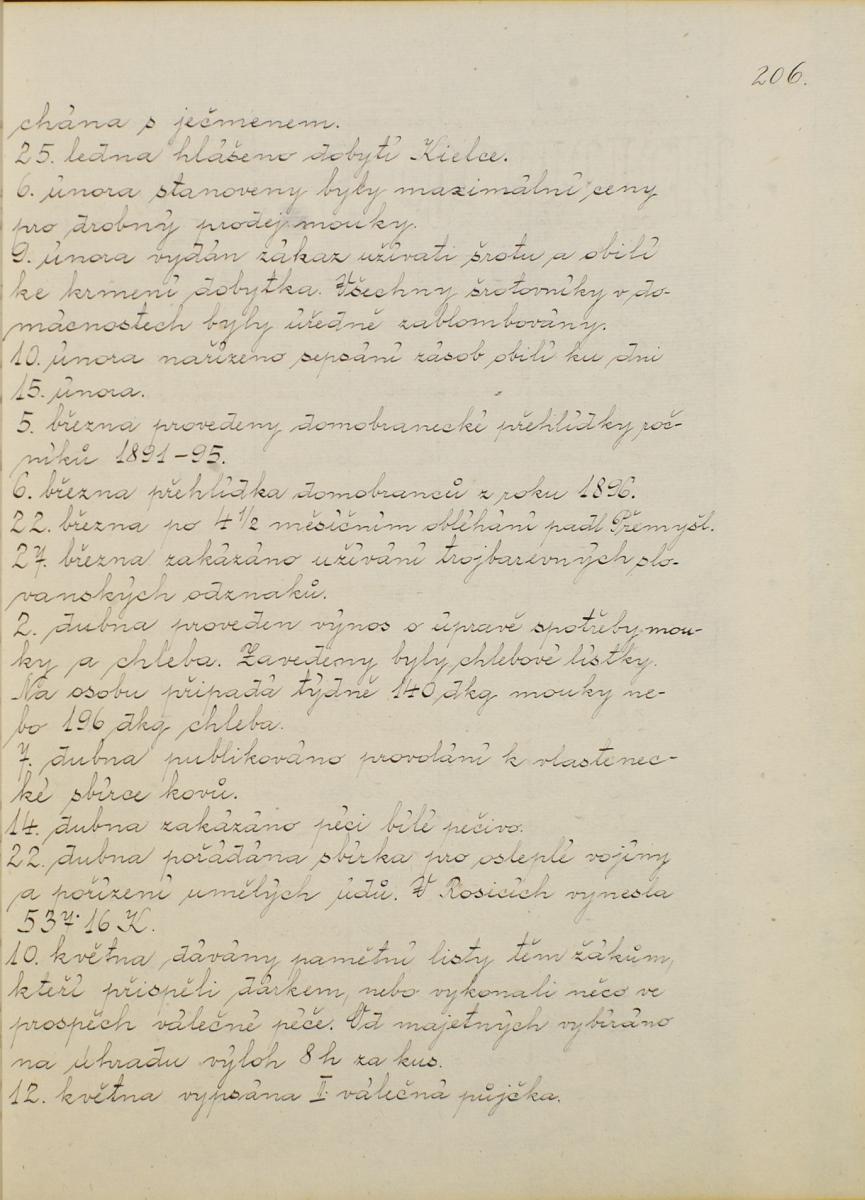 206.
chána s ječmenem.
25. ledna hlášeno dobytí Kielce.
6. února stanoveny byly maximální ceny
pro drobný prodej mouky.
9. února vydán zákaz užívati šrotu a obilí
ke krmení dobytka. Všechny šrotovníky v do-
mácnostech byly úředně zablombovány.
10. února nařízeno sepsání zásob obilí ku dni
15. února.
5. března provedeny domobranecké přehlídky roč-
níků 1891-95.
6. března přehlídka domobranců z roku 1896.
22. března po 4 1/2 měsíčním obléhání padl Přemyšl.
27. března zakázáno užívání trojbarevných slo-
vanských odznaků.
2. dubna proveden výnos o úpravě spotřeby mou-
ky a chleba. Zavedeny byly chlebové lístky.
Na osobu připadá týdně 140 dkg mouky ne-
bo 196 dkg chleba.
7. dubna publikováno provolání k vlastenec-
ké sbírce kovů.
14. dubna zakázáno péci bílé pečivo.
22. dubna pořádána sbírka pro osleplé vojíny
a pořízení umělých údů. V Rosicích vynesla
537·16 K.
10. května dávány pamětní listy těm žákům,
kteří přispěli dárkem, nebo vykonali něco ve
prospěch válečné péče. Od majetných vybíráno
na úhradu výloh 8 h za kus.
12. května vypsána II. válečná půjčka.